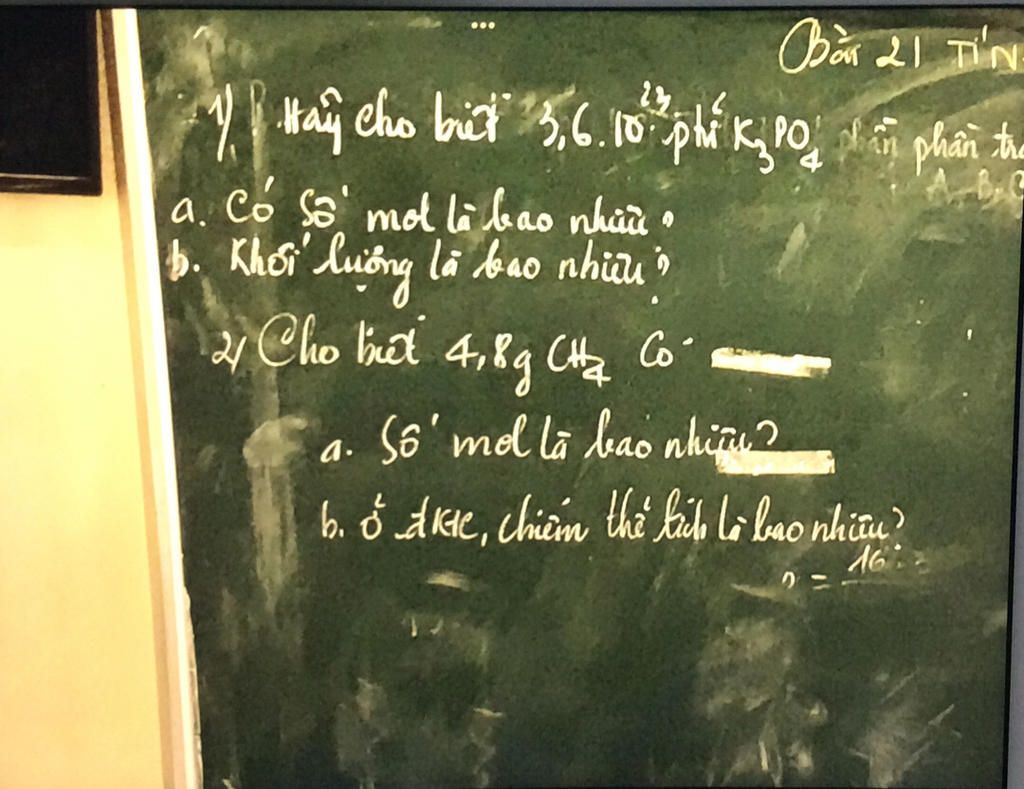 Bài 21 TÍN
1) Hãy cho biết 3,6.10²³ ptử K₃PO₄ phần
a. Có số mol là bao nhiêu?
b. Khối lượng là bao nhiêu?
2) Cho biết 4,8g CH₄ Có
a. Số mol là bao nhiêu?
b. ở đktc, chiếm thể tích là bao nhiêu?
= 16